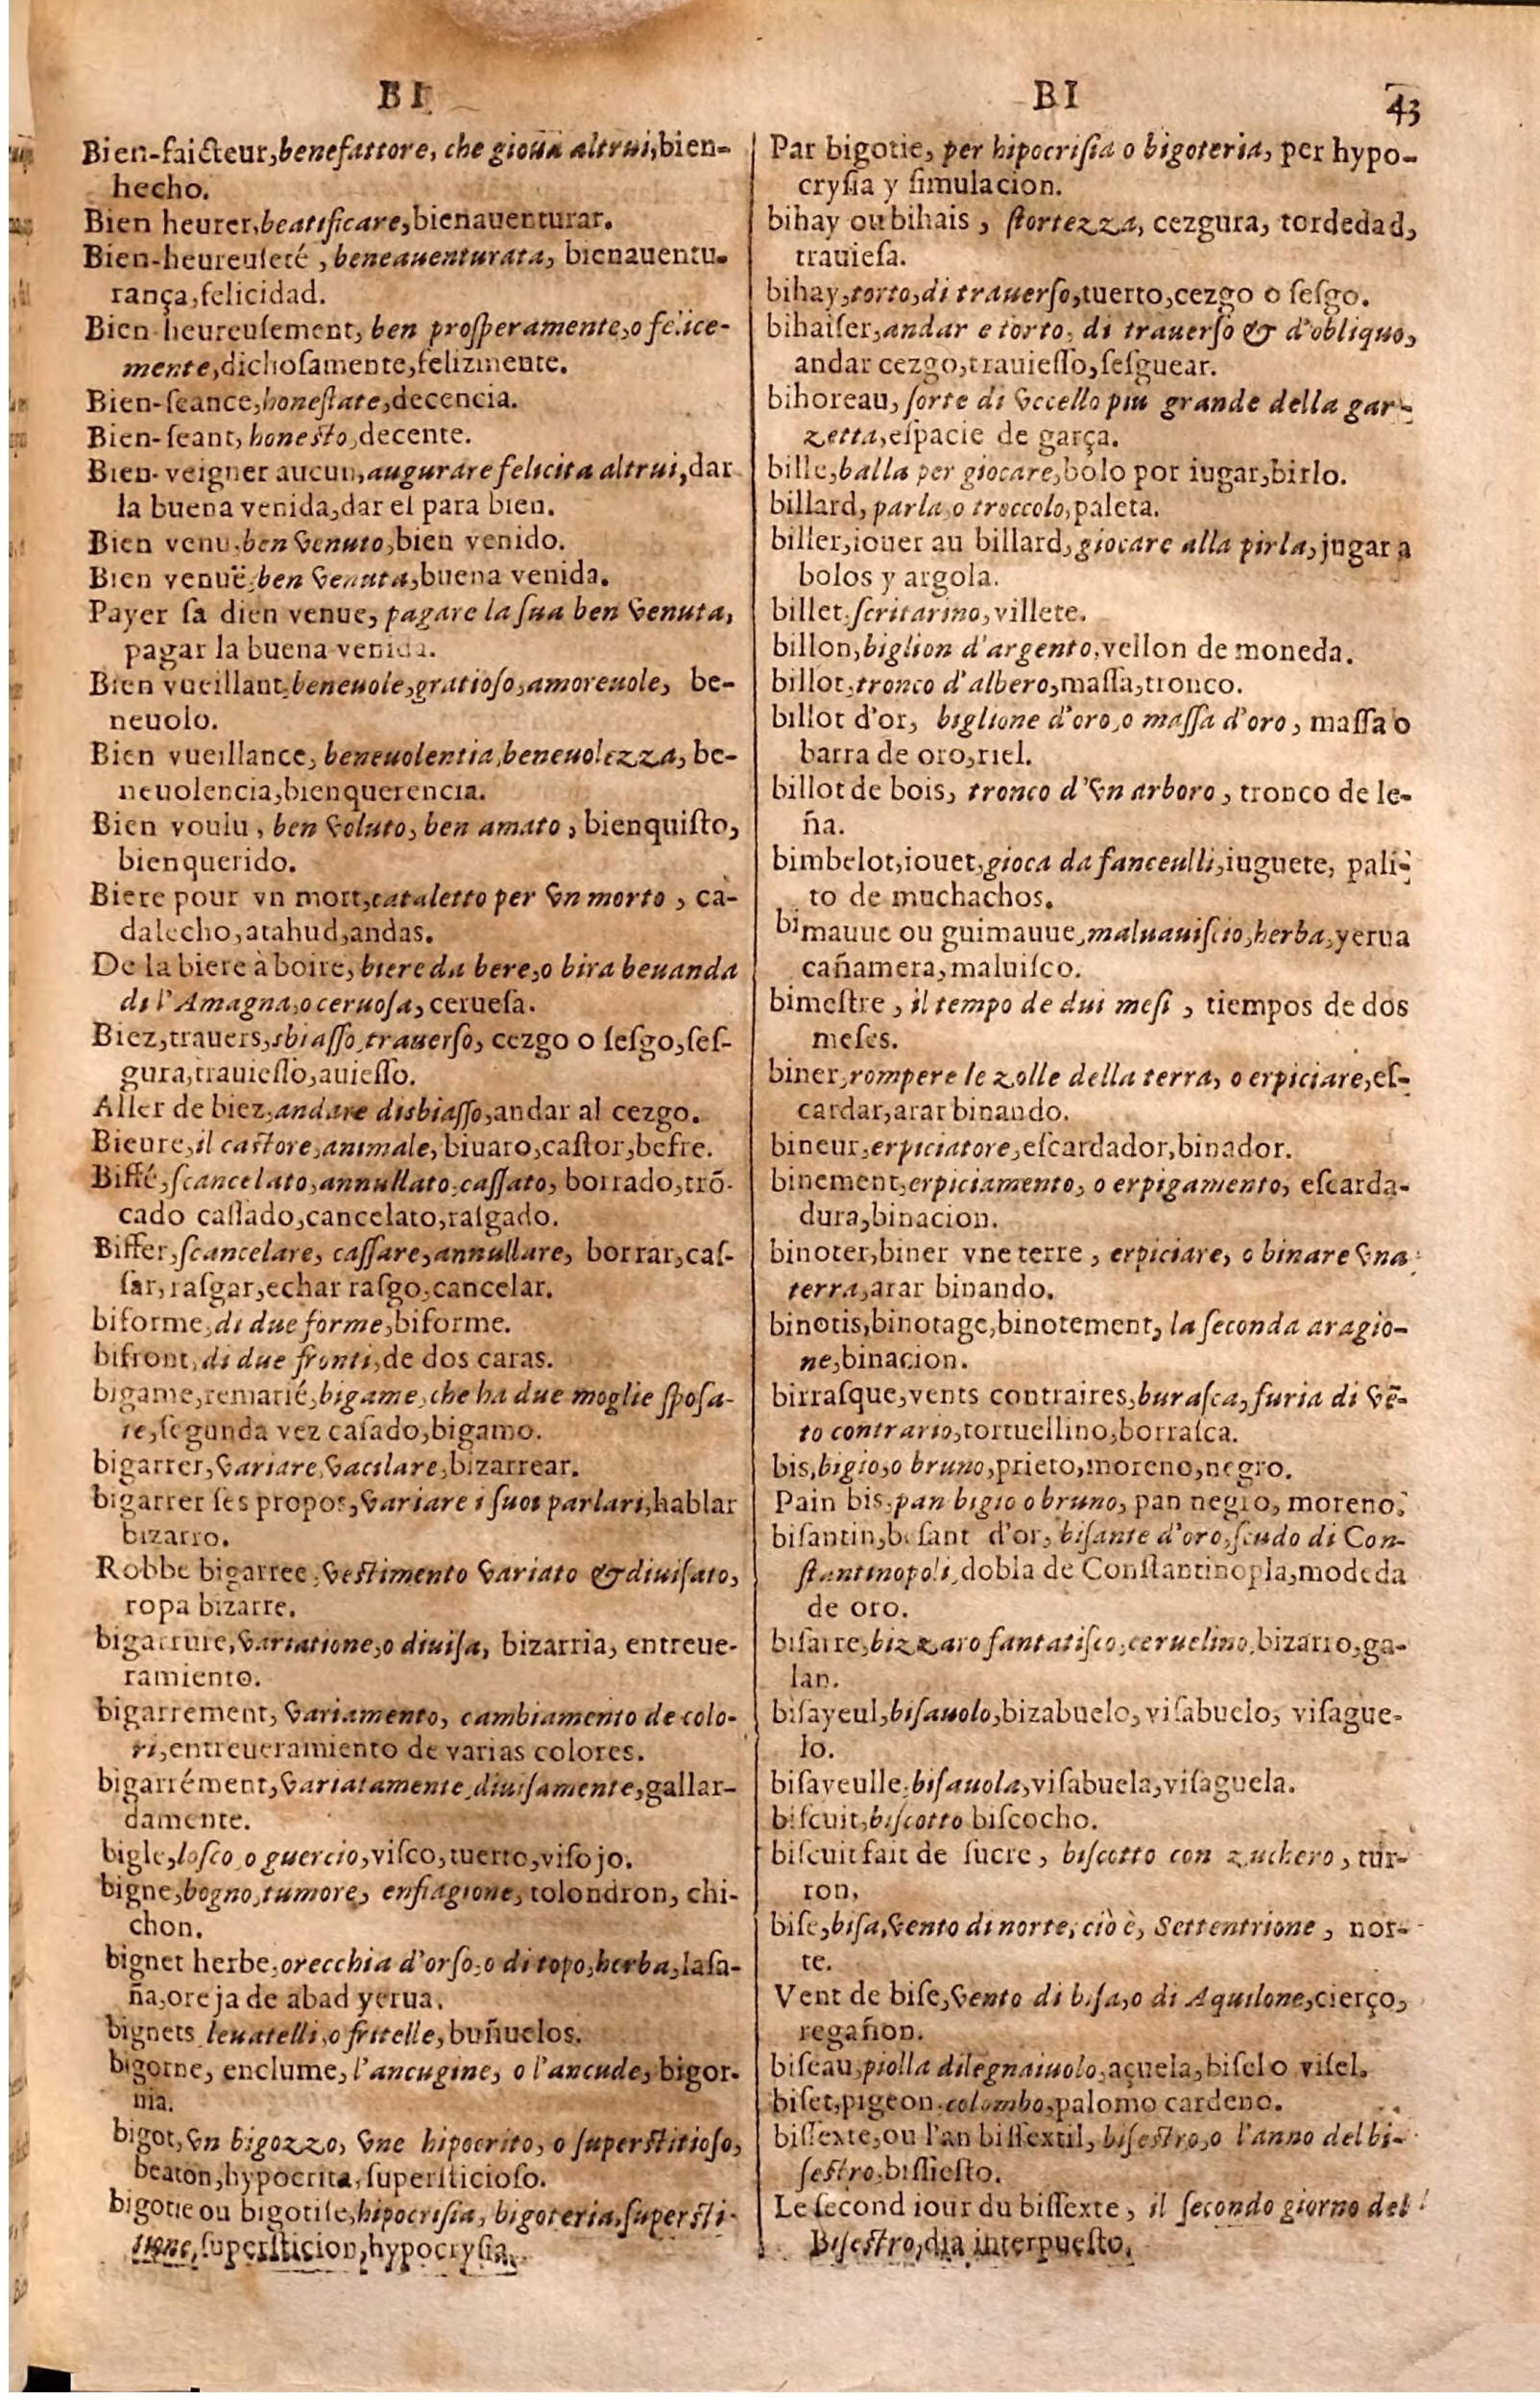 B I
Bien-faicteur, benefattore, che gioua altrui, bien-
hecho.
Bien heurer, beatificare, bienauenturar.
Bien-heureuſeté, beneauenturata, bienauentu-
rança, felicidad.
Bien-heureuſement, ben proſperamente, o felice-
mente, dichoſamente, felizmente.
Bien-ſeance, honeſtate, decencia.
Bien-ſeant, honeſto, decente.
Bien-veigner aucun, augurare felicita altrui, dar
la buena venida, dar el para bien.
Bien venu, ben venuto, bien venido.
Bien venuë, ben venuta, buena venida.
Payer ſa dien venue, pagare la ſua ben venuta,
pagar la buena venida.
Bien vueillant, beneuole, gratioſo, amoreuole, be-
neuolo.
Bien vueillance, beneuolentia, beneuolezza, be-
neuolencia, bienquerencia.
Bien voulu, ben voluto, ben amato, bienquiſto,
bienquerido.
Biere pour vn mort, cataletto per vn morto, ca-
dalecho, atahud, andas.
De la biere à boire, biere da bere, o bira beuanda
di l'Amagna, o ceruoſa, cerueſa.
Biez, trauers, sbiaſſo, trauerſo, cezgo o ſeſgo, ſeſ-
gura, trauieſſo, auieſſo.
Aller de biez, andare disbiaſſo, andar al cezgo.
Bieure, il caſtore, animale, biuaro, caſtor, befre.
Biffé, ſcancelato, annullato, caſſato, borrado, trõ-
cado caſſado, cancelato, raſgado.
Biffer, ſcancelare, caſſare, annullare, borrar, caſ-
ſar, raſgar, echar raſgo, cancelar.
biforme, di due forme, biforme.
bifront, di due fronti, de dos caras.
bigame, remarié, bigame, che ha due moglie ſpoſa-
te, ſegunda vez caſado, bigamo.
bigarrer, variare, vacilare, bizarrear.
bigarrer ſes propos, variare i ſuoi parlari, hablar
bizarro.
Robbe bigarree, veſtimento variato & diuiſato,
ropa bizarre.
bigarrure, variatione, o diuiſa, bizarria, entreue-
ramiento.
bigarrement, variamento, cambiamento de colo-
ri, entreueramiento de varias colores.
bigarrément, variatamente, diuiſamente, gallar-
damente.
bigle, loſco o guercio, viſco, tuerto, viſojo.
bigne, bogno, tumore, enfiagione, tolondron, chi-
chon.
bignet herbe, orecchia d'orſo, o di topo, herba, laſa-
ña, oreja de abad yerua.
bignets leuatelli, o fritelle, buñuelos.
bigorne, enclume, l'ancugine, o l'ancude, bigor-
nia.
bigot, vn bigozzo, vne hipocrito, o ſuperſtitioſo,
beaton, hypocrita, ſuperſticioſo.
bigotie ou bigotiſe, hipocriſia, bigoteria, ſuperſti-
tione, ſuperſticion, hypocryſia.
B I 43
Par bigotie, per hipocriſia o bigoteria, per hypo-
cryſia y ſimulacion.
bihay ou bihais, ſtortezza, cezgura, tordedad,
trauieſa.
bihay, torto, di trauerſo, tuerto, cezgo o ſeſgo.
bihaiſer, andar e torto, di trauerſo & d'obliquo,
andar cezgo, trauieſſo, ſeſguear.
bihoreau, ſorte di vccello piu grande della gar-
zetta, eſpacie de garça.
bille, balla per giocare, bolo por iugar, birlo.
billard, parla o troccolo, paleta.
biller, iouer au billard, giocare alla pirla, jugar a
bolos y argola.
billet, ſcritarino, villete.
billon, biglion d'argento, vellon de moneda.
billot, tronco d'albero, maſſa, tronco.
billot d'or, biglione d'oro, o maſſa d'oro, maſſa o
barra de oro, riel.
billot de bois, tronco d'vn arboro, tronco de le-
ña.
bimbelot, iouet, gioca da fanceulli, iuguete, pali-
to de muchachos.
bimauue ou guimauue, maluauiſcio, herba, yerua
cañamera, maluiſco.
bimeſtre, il tempo de dui meſi, tiempos de dos
meſes.
biner, rompere le zolle della terra, o erpiciare, eſ-
cardar, arar binando.
bineur, erpiciatore, eſcardador, binador.
binement, erpiciamento, o erpigamento, eſcarda-
dura, binacion.
binoter, biner vne terre, erpiciare, o binare vna
terra, arar binando.
binotis, binotage, binotement, la ſeconda aragio-
ne, binacion.
birraſque, vents contraires, buraſca, furia di vẽ-
to contrario, tortuellino, borraſca.
bis, bigio, o bruno, prieto, moreno, negro.
Pain bis, pan bigio o bruno, pan negro, moreno.
biſantin, beſant d'or, biſante d'oro, ſcudo di Con-
ſtantinopoli, dobla de Conſtantinopla, modeda
de oro.
biſarre, bizzaro fantatiſco, ceruelino, bizarro, ga-
lan.
biſayeul, biſauolo, bizabuelo, viſabuelo, viſague-
lo.
biſayeulle, biſauola, viſabuela, viſaguela.
biſcuit, biſcotto biſcocho.
biſcuit fait de ſucre, biſcotto con zuchero, tur-
ron,
biſe, biſa, vento di norte, ciò è, Settentrione, nor-
te.
Vent de biſe, vento di biſa, o di Aquilone, cierço,
regañon.
biſeau, piolla dilegnaiuolo, açuela, biſel o viſel.
biſet, pigeon, colombo, palomo cardeno.
biſſexte, ou l'an biſſextil, biſeſtro, o l'anno del bi-
ſeſtro, biſſieſto.
Le ſecond iour du biſſexte, il ſecondo giorno del
Biſeſtro, dia interpueſto.